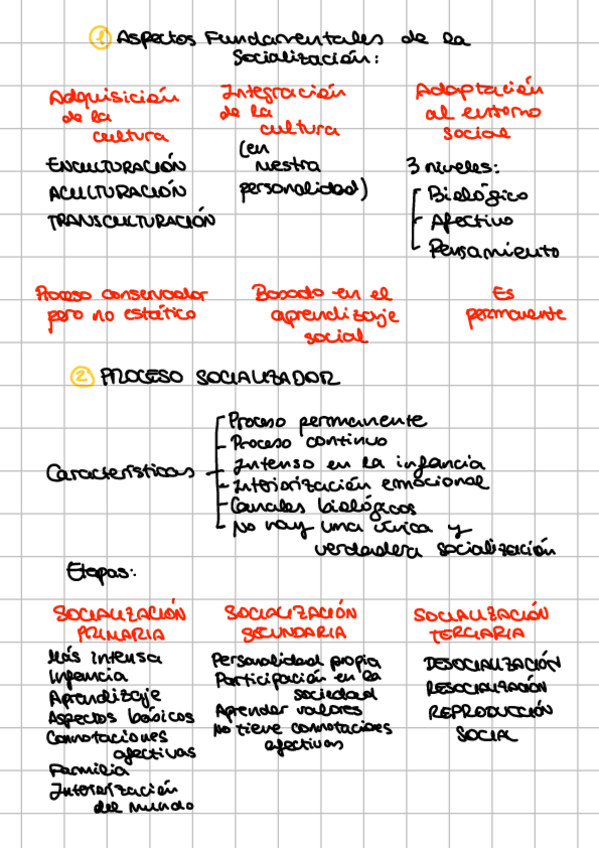 ① Aspectos Fundamentales de la
Socialización:
Adquisición
de la
cultura
ENCULTURACIÓN
ACULTURACIÓN
TRANSCULTURACIÓN
Integración
de la
cultura
(en
nuestra
personalidad)
Adaptación
al entorno
social
3 niveles:
Biológico
Afectivo
Pensamiento
Proceso conservador
pero no estático
Basado en el
aprendizaje
social
Es
permanente
② PROCESO SOCIALIZADOR
Características
Proceso permanente
Proceso continuo
Intenso en la infancia
Interiorización emocional
Canales biológicos
No hay una única y
verdadera socialización
Etapas:
SOCIALIZACIÓN
PRIMARIA
Más intensa
Infancia
Aprendizaje
Aspectos básicos
Connotaciones
afectivas
Familia
Interiorización
del mundo
SOCIALIZACIÓN
SECUNDARIA
Personalidad propia
Participación en la
sociedad
Aprender valores
No tiene connotaciones
afectivas
SOCIALIZACIÓN
TERCIARIA
DESOCIALIZACIÓN
RESOCIALIZACIÓN
REPRODUCCIÓN
SOCIAL